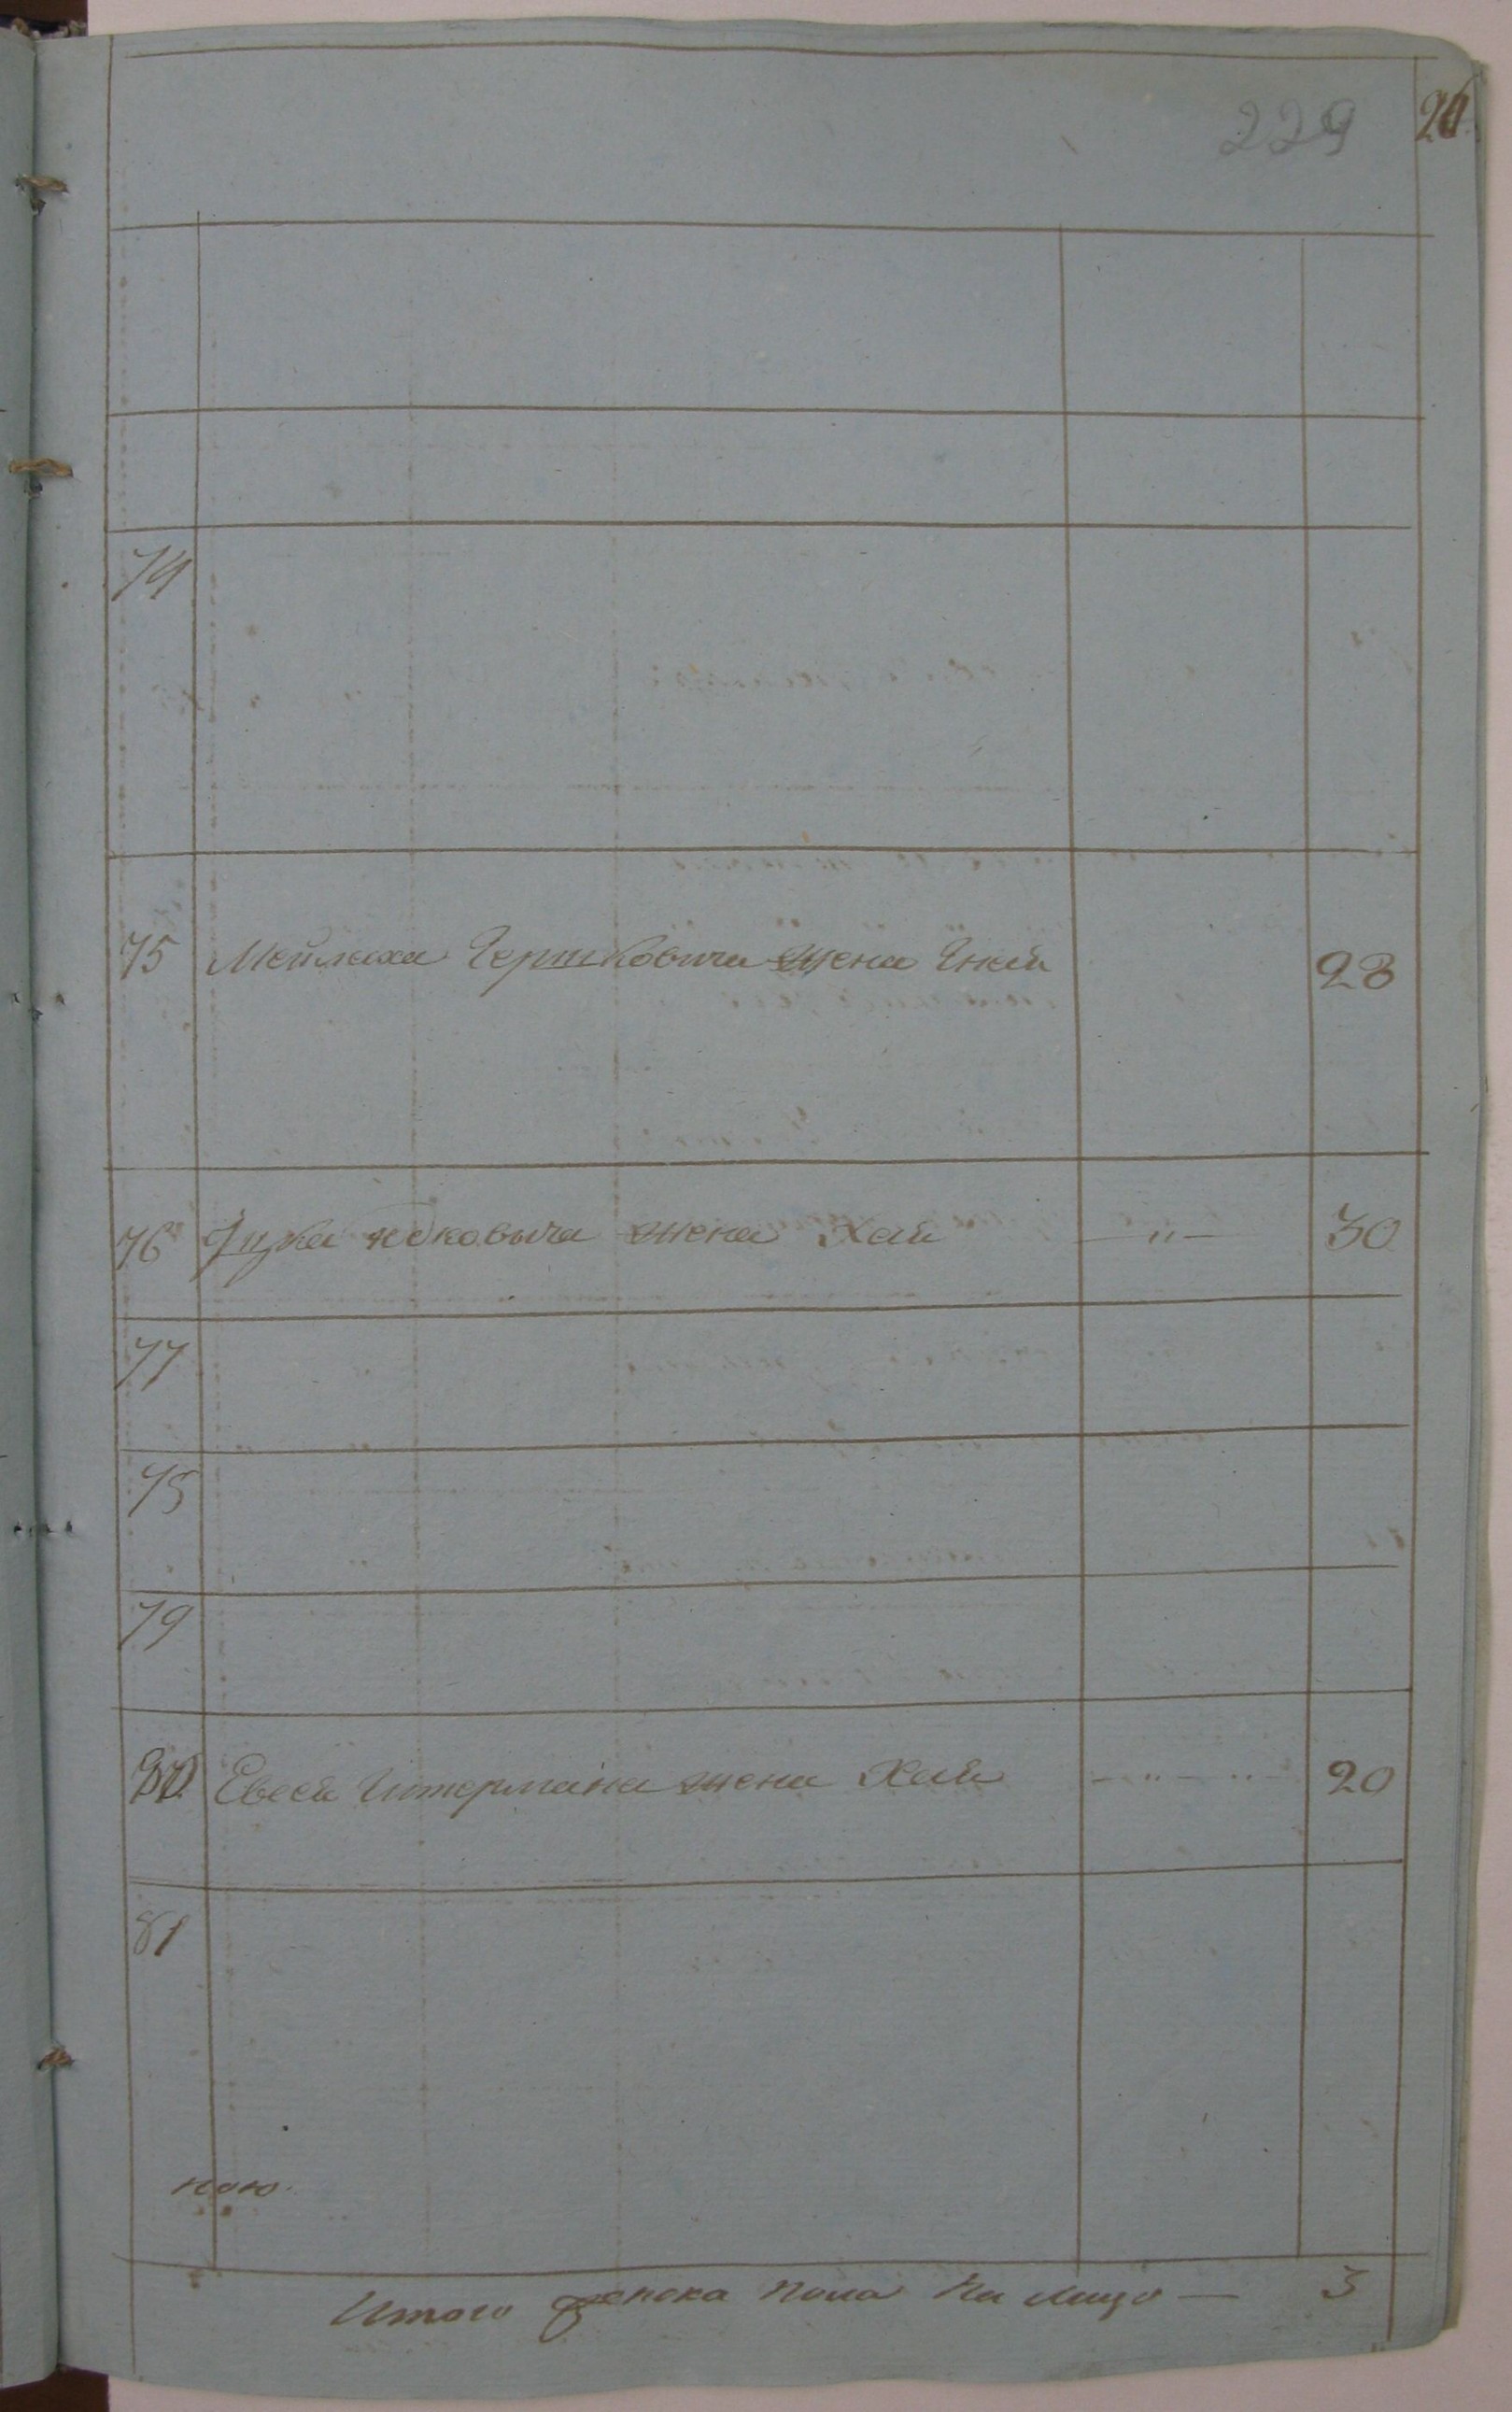 229
26
74
75 Мейлаха Гершковича жена Эней 28
76 Ицка жена Хая —„— 30
77
78
79
80 Евсея Гитермана жена Хая —„—„— 20
81
ною.
Итого женска пола на лицо — 3